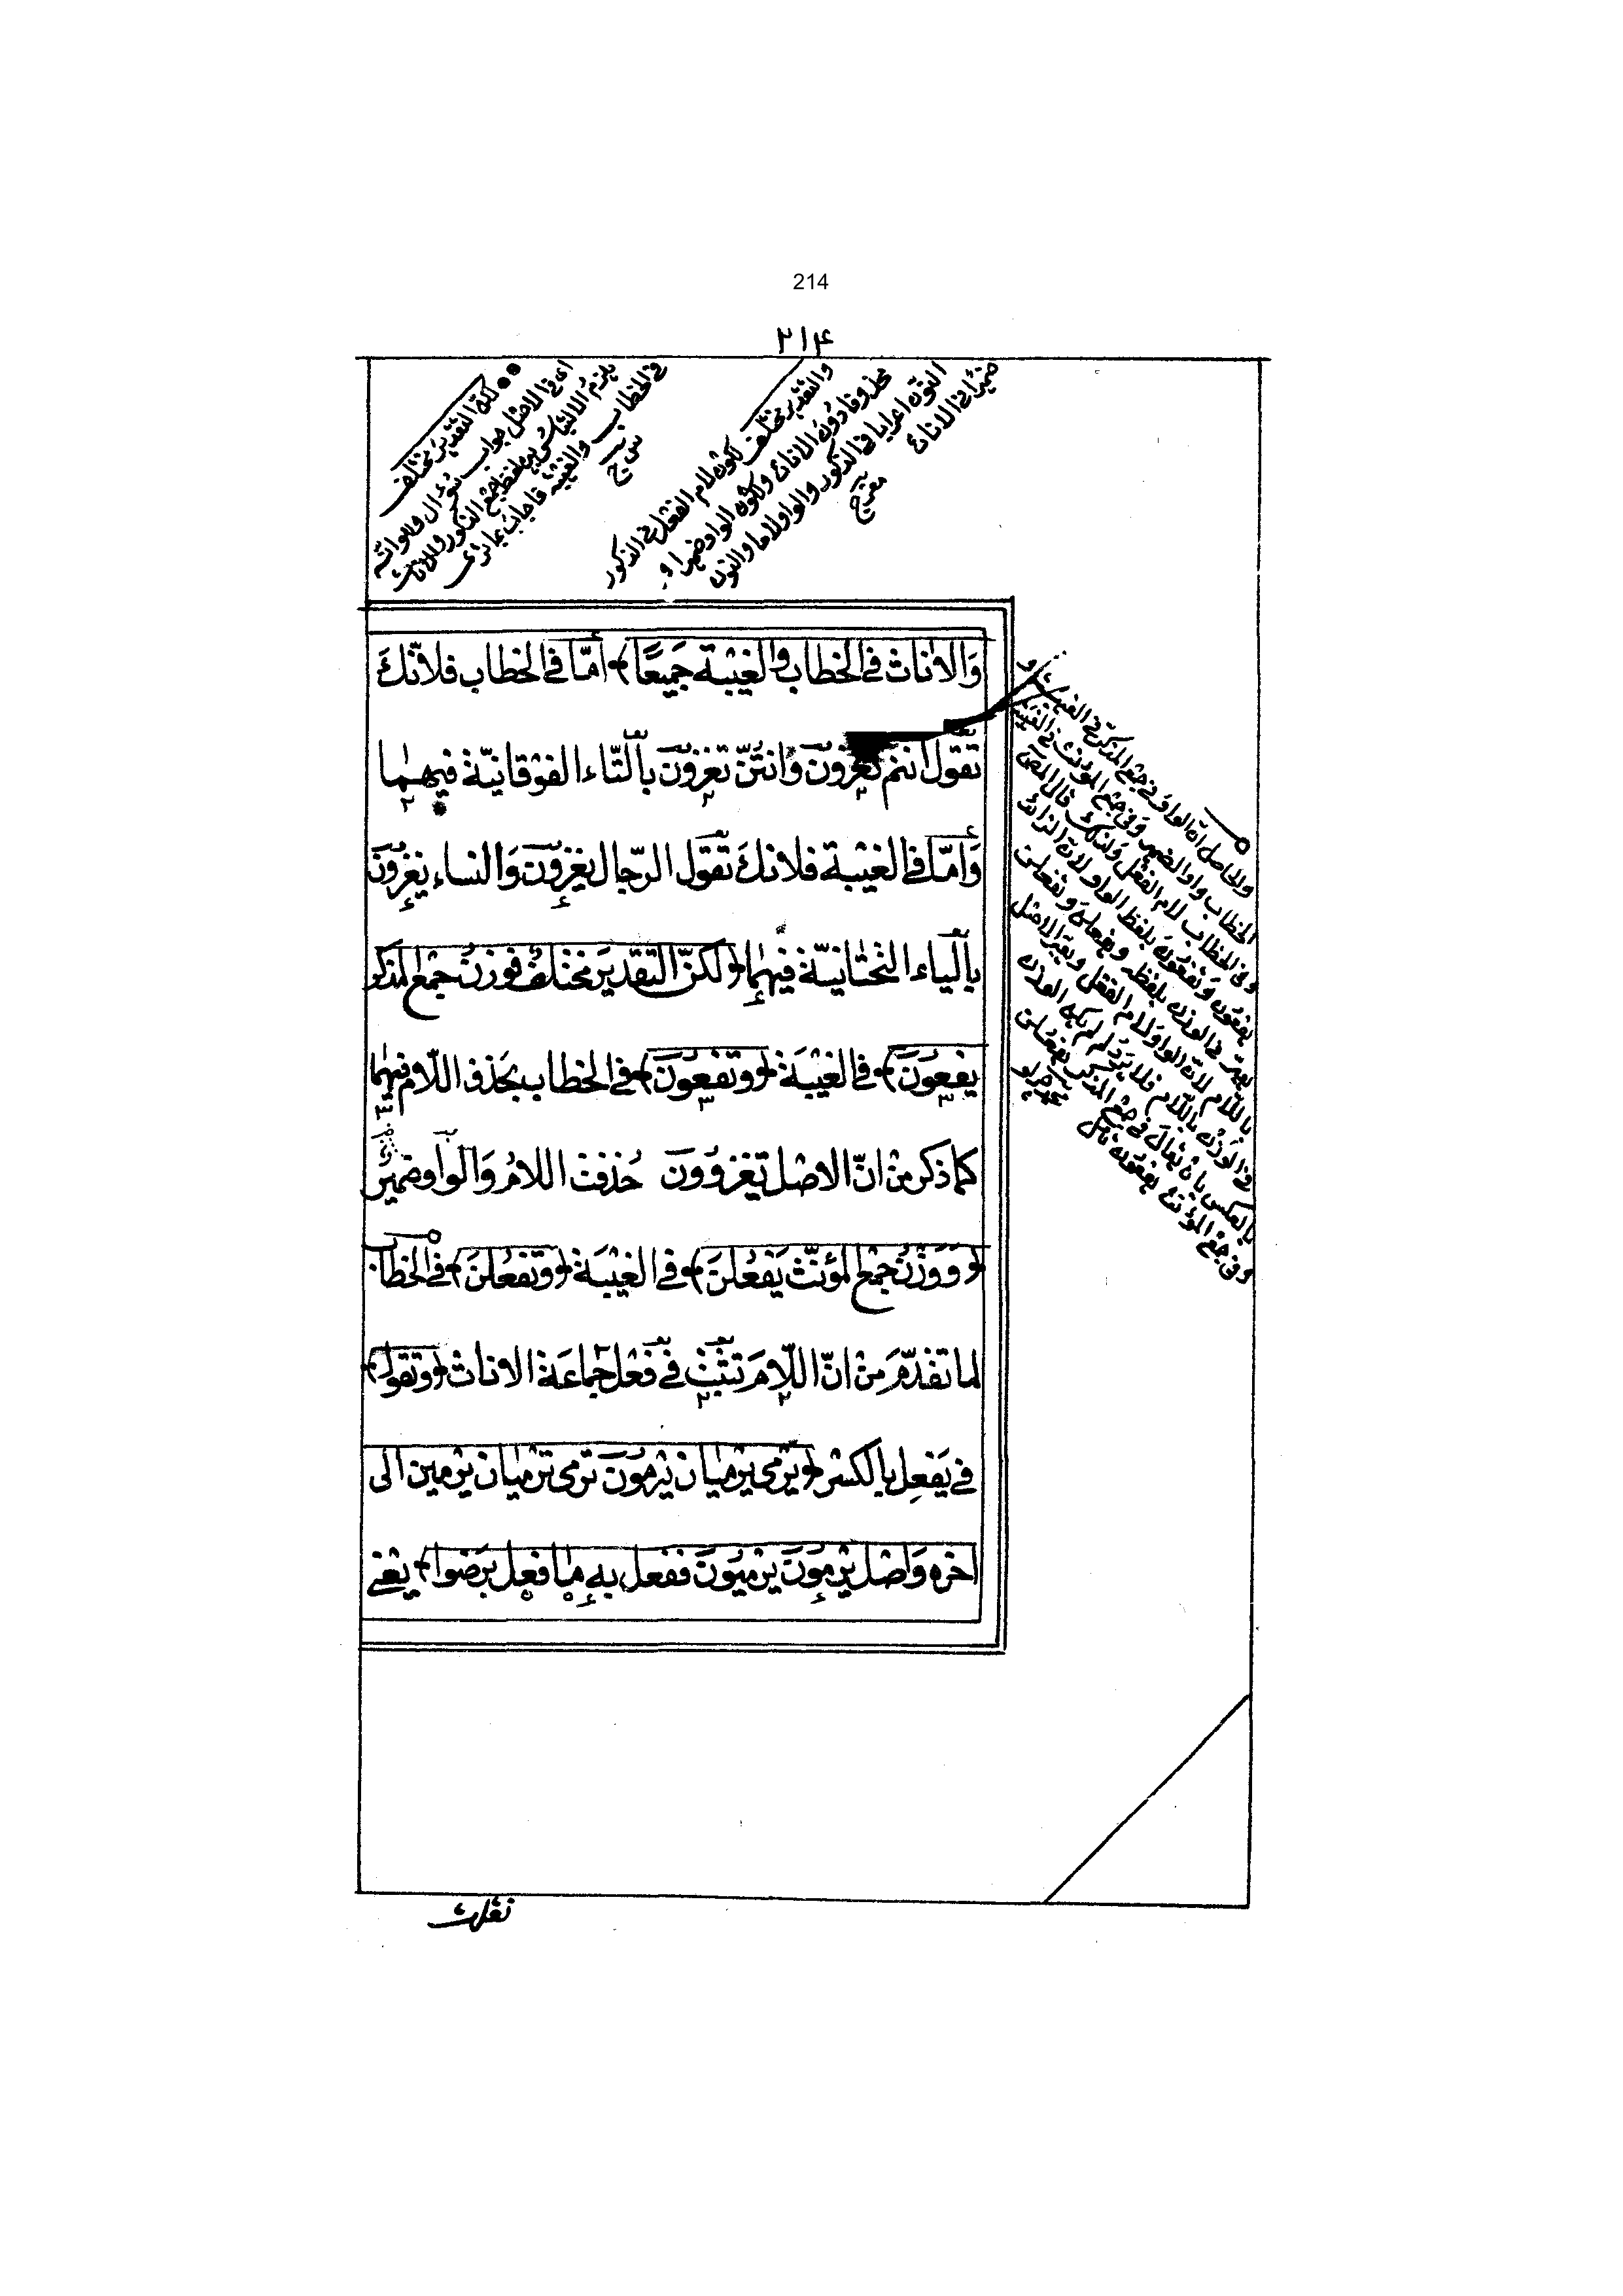 214
۲۱۴
لكنّ التقدير مختلف
اى فى الاصل جواب سؤال وهو انّه
يلزم الالتباس بين لفظ جمع الذكور والاناث
فى الخطاب والغيبة فاجاب بما ترى
والتقدير مختلف لكون لام الفعل فى الذكور
محذوفا دون الاناث وكون الواو ضميرا و
النون اعرابا فى الذكور والواو لاما والنون
ضميرا فى الاناث
وَالاناث فى الخطاب والغيبة جَميعًا﴾ امّا فى الخطاب فلانّكَ
تقول انتم تغزون وَانتنّ تغزون بالتّاء الفوقانيّة فيهما
وَأمّا فى الغيبة فلانك تقول الرّجال يغزون وَالنساء يغزون
بالياء التحتانيّة فيهما ﴿لكنّ التقديرَ مختلفٌ فوزنُ جمْع المذكر
يفعُونَ﴾ فى الغيْبَة ﴿وتفعُونَ﴾ فى الخطاب بحَذف اللّام فيهما
كما ذكر منْ انّ الاصْل تغزوُونَ حُذفت اللامُ وَالواو ضميرٌ
﴿وَوَزْنُ جمْع المؤنّث يَفعُلنَ﴾ فى الغيْبَة ﴿وتفعُلنَ﴾ فى الخطاب
لما تقدّمَ منْ انّ اللّامَ تثبت فى فعْل جماعَة الاناث ﴿وتقول﴾
فى يَفعِل بالكسْر ﴿يرْمى يرْميان يرْمُونَ ترْمى ترْميان يرْمين الى
اخره وَاصْل يرْمُونَ يرْميُونَ ففعل به ما فعل برَضوا﴾ يعْنى
والحاصل انّ الواو فى جمع المذكر فى الغيبة و
الخطاب واو الضمير وفى جمع المؤنث فى الغيبة
وفى الخطاب لام الفعل ولذلك قال المص
يفعُون وتفعُون بلفظ الواو لانّ الزائد
يعبّر فى الوزن بلفظه ويفعلن وتفعلن
باللام لانّ الواو لام الفعل ويعبّر الاصل
فى الوزن باللام فلا يرد لم لم يكن الوزن
بالعكس بان يقال فى جمع المذكر يفعُلن
وفى جمع المؤنث يفعون تأمل
نقلت